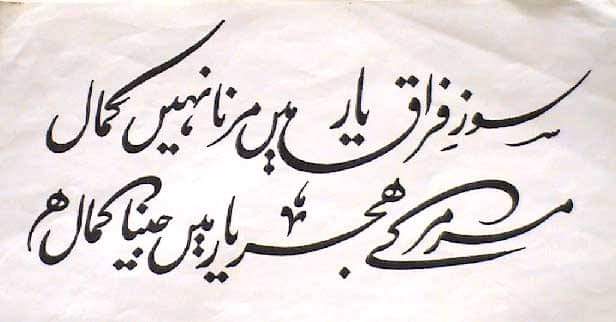 سوزِ فراق یار میں مرنا نہیں کمال
مر مر کے ہجر یار میں جینا کمال ہے